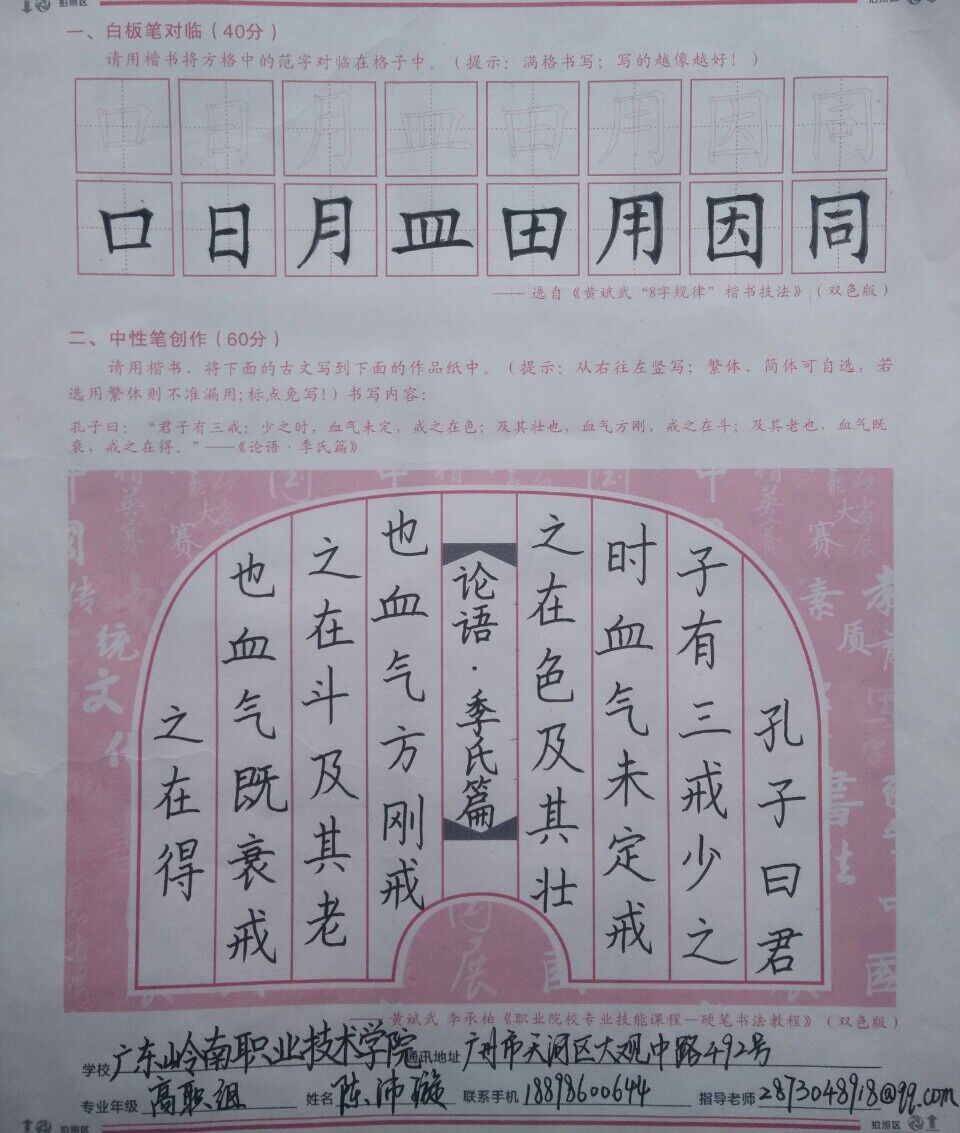 拍照区
拍照区
一、白板笔对临（40分）
请用楷书将方格中的范字对临在格子中。（提示：满格书写；写的越像越好！）
口日月皿田用因同
口日月皿田用因同
——选自《黄斌武“8字规律”楷书技法》（双色版）
二、中性笔创作（60分）
请用楷书，将下面的古文写到下面的作品纸中。（提示：从右往左竖写；繁体，简体可自选，若
选用繁体则不准漏用；标点免写！）书写内容：
孔子曰：“君子有三戒：少之时，血气未定，戒之在色；及其壮也，血气方刚，戒之在斗；及其老也，血气既
衰，戒之在得。”——《论语·季氏篇》
孔子曰君
子有三戒少之
时血气未定戒
之在色及其壮
论语·季氏篇
也血气方刚戒
之在斗及其老
也血气既衰戒
之在得
——黄斌武 李承柏《职业院校专业技能课程—硬笔书法教程》（双色版）
学校 广东岭南职业技术学院 通讯地址 广州市天河区大观中路492号
专业年级 高职组 姓名 陈沛璇 联系手机 18898600644 指导老师 2873048918@qq.com
拍照区
拍照区